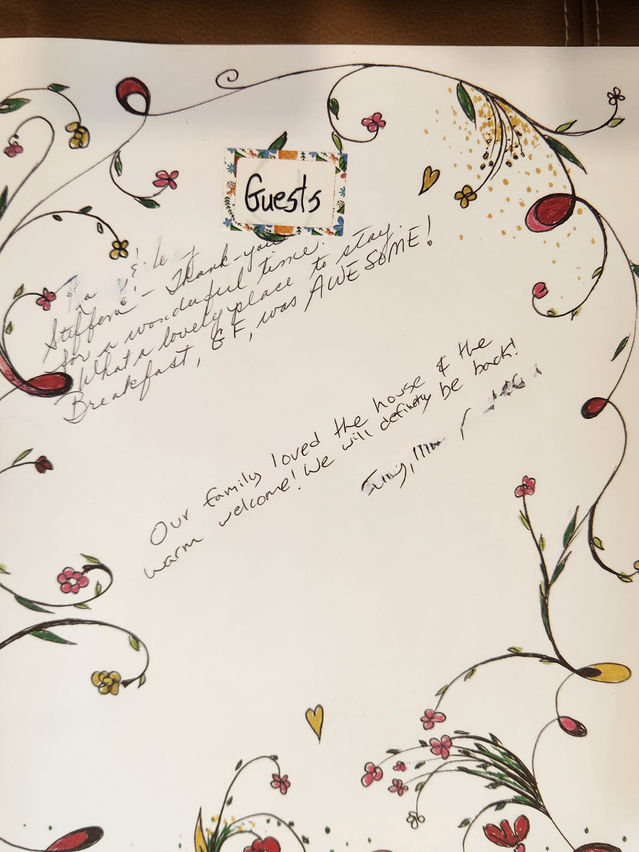 Guests
&
Steffern - Thank-you
for a wonderful time.
What a lovely place to stay.
Breakfast, GF, was AWESOME!
Our family loved the house & the
warm welcome! We will definitely be back!